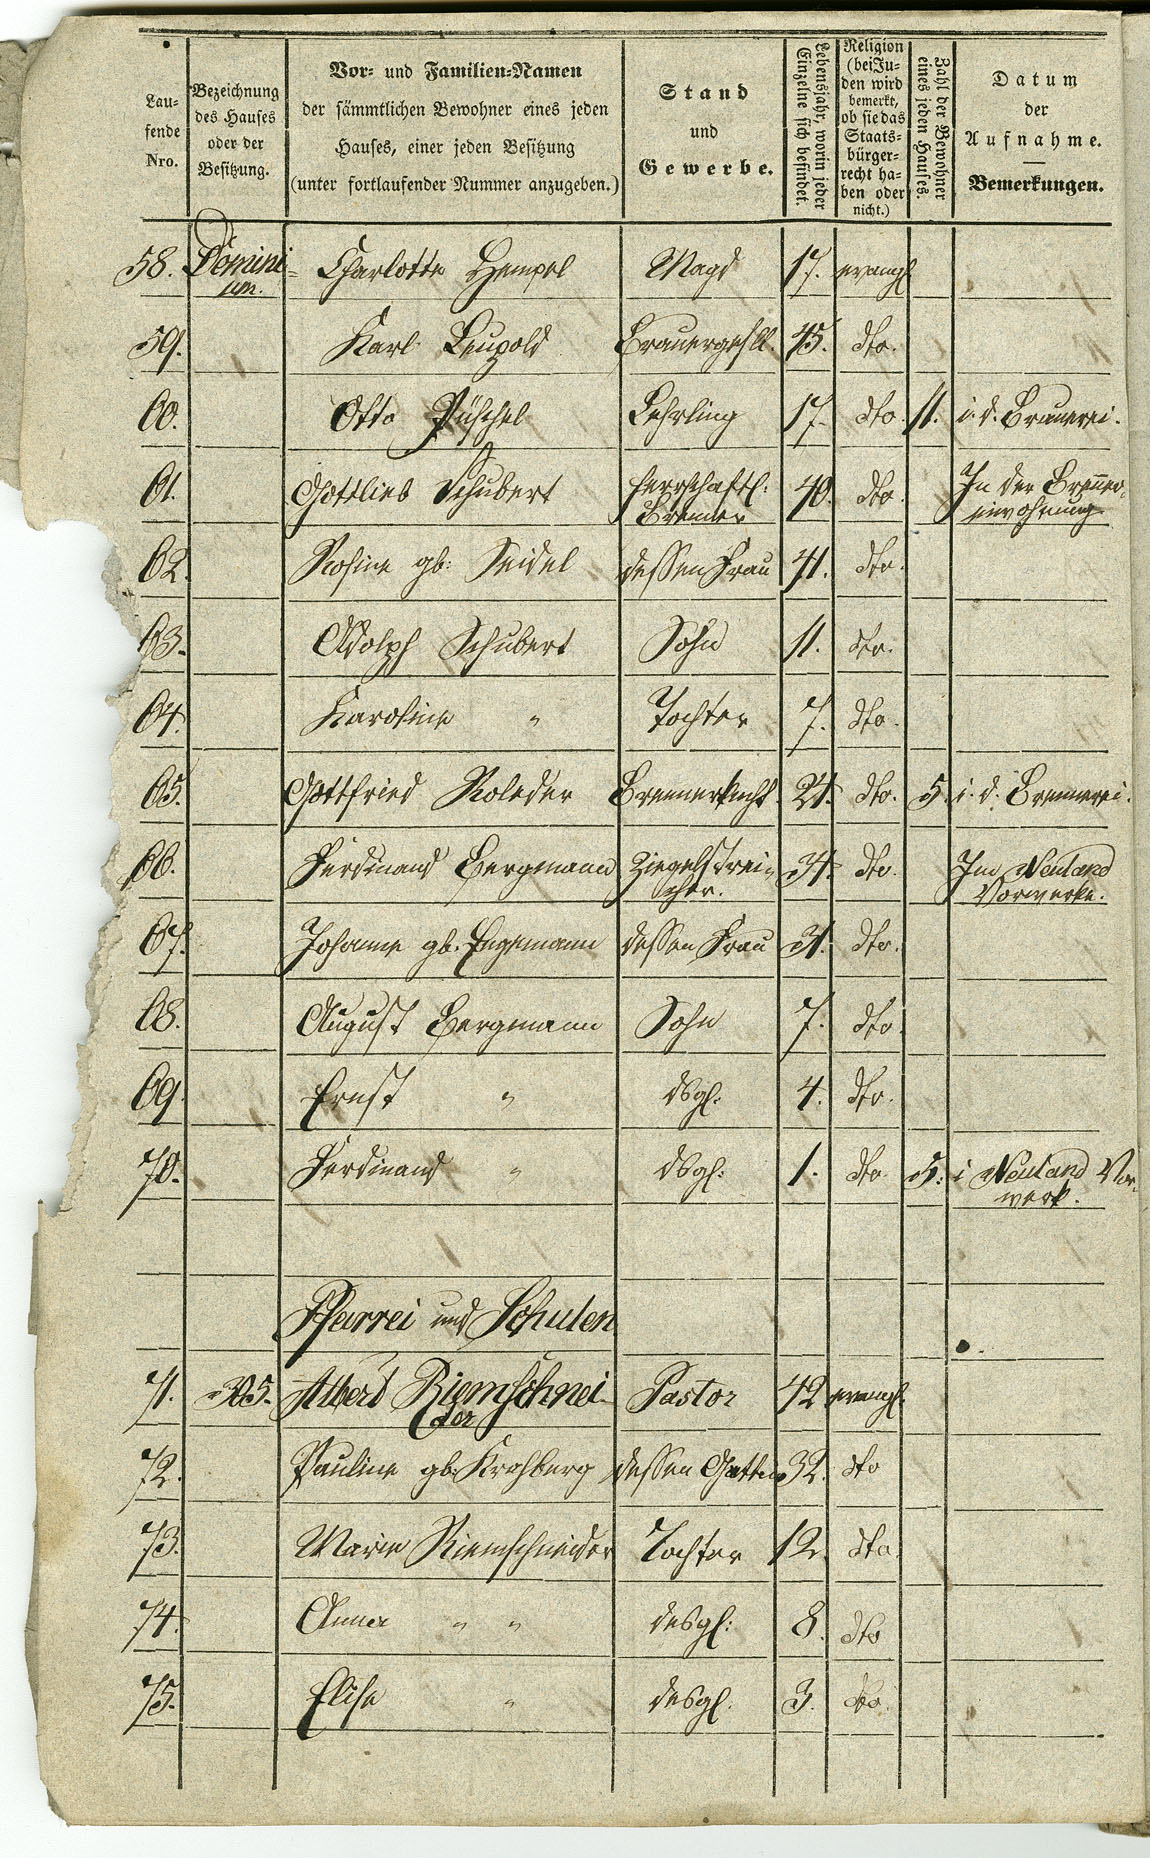 Lau-
fende
Nro.
Bezeichnung
des Hauses
oder der
Besitzung.
Vor- und Familien-Namen
der sämmtlichen Bewohner eines jeden
Hauses, einer jeden Besitzung
(unter fortlaufender Nummer anzugeben.)
Stand
und
Gewerbe.
Lebensjahr, worin jeder
Einzelne sich befindet.
Religion
(bei Ju-
den wird
bemerkt,
ob sie das
Staats-
bürger-
recht ha-
ben oder
nicht.)
Zahl der Bewohner
eines jeden Hauses.
Datum
der
Aufnahme.
Bemerkungen.
58. Domini- Charlotte Hempel Magd 17. evangl
um.
59. Karl Leupold Brauergesll. 45. dto.
60. Otto Püschel Lehrling 17. dto. 11. i. d. Brauerei.
61. Gottlieb Schubert herrschaftl: 40. dto. In der Brenner-
Brenner eiwohnung
62. Rosine gb: Seidel dessen Frau 41. dto.
63. Adolph Schubert Sohn 11. dto.
64. Karoline " Tochter 7. dto.
65. Gottfried Roleder Brennerknecht 24. dto. 5. i. d. Brennerei.
66. Ferdinand Bergmann Ziegelstrei- 34. dto. Im Neuland
cher. Vorwerke.
67. Johanne gb. Engemann dessen Frau 31. dto.
68. August Bergmann Sohn 7. dto.
69. Ernst " dsgl: 4. dto.
70. Ferdinand " dsgl: 1. dto 5. i Neuland Vor-
werk.
Pfarrei und Schulen
71. 305. Albert Riemschnei- Pastor 42 evangl.
der
72. Pauline gb. Krahberg dessen Gattin 32. dto
73. Marie Riemschneider Tochter 12. dto.
74. Anna " " desgl: 8. dto
75. Elise " desgl. 3. dto.